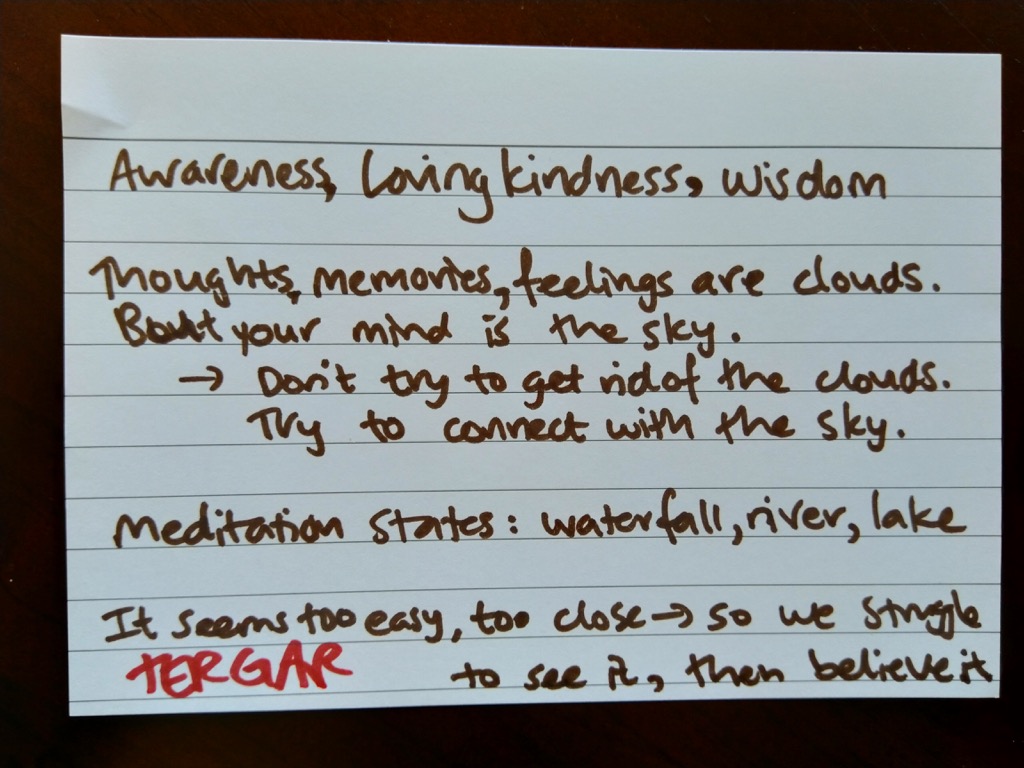 Awareness, Loving kindness, wisdom
Thoughts, memories, feelings are clouds.
But your mind is the sky.
→ Don't try to get rid of the clouds.
Try to connect with the sky.
Meditation states: waterfall, river, lake
It seems too easy, too close → so we struggle
TERGAR to see it, then believe it